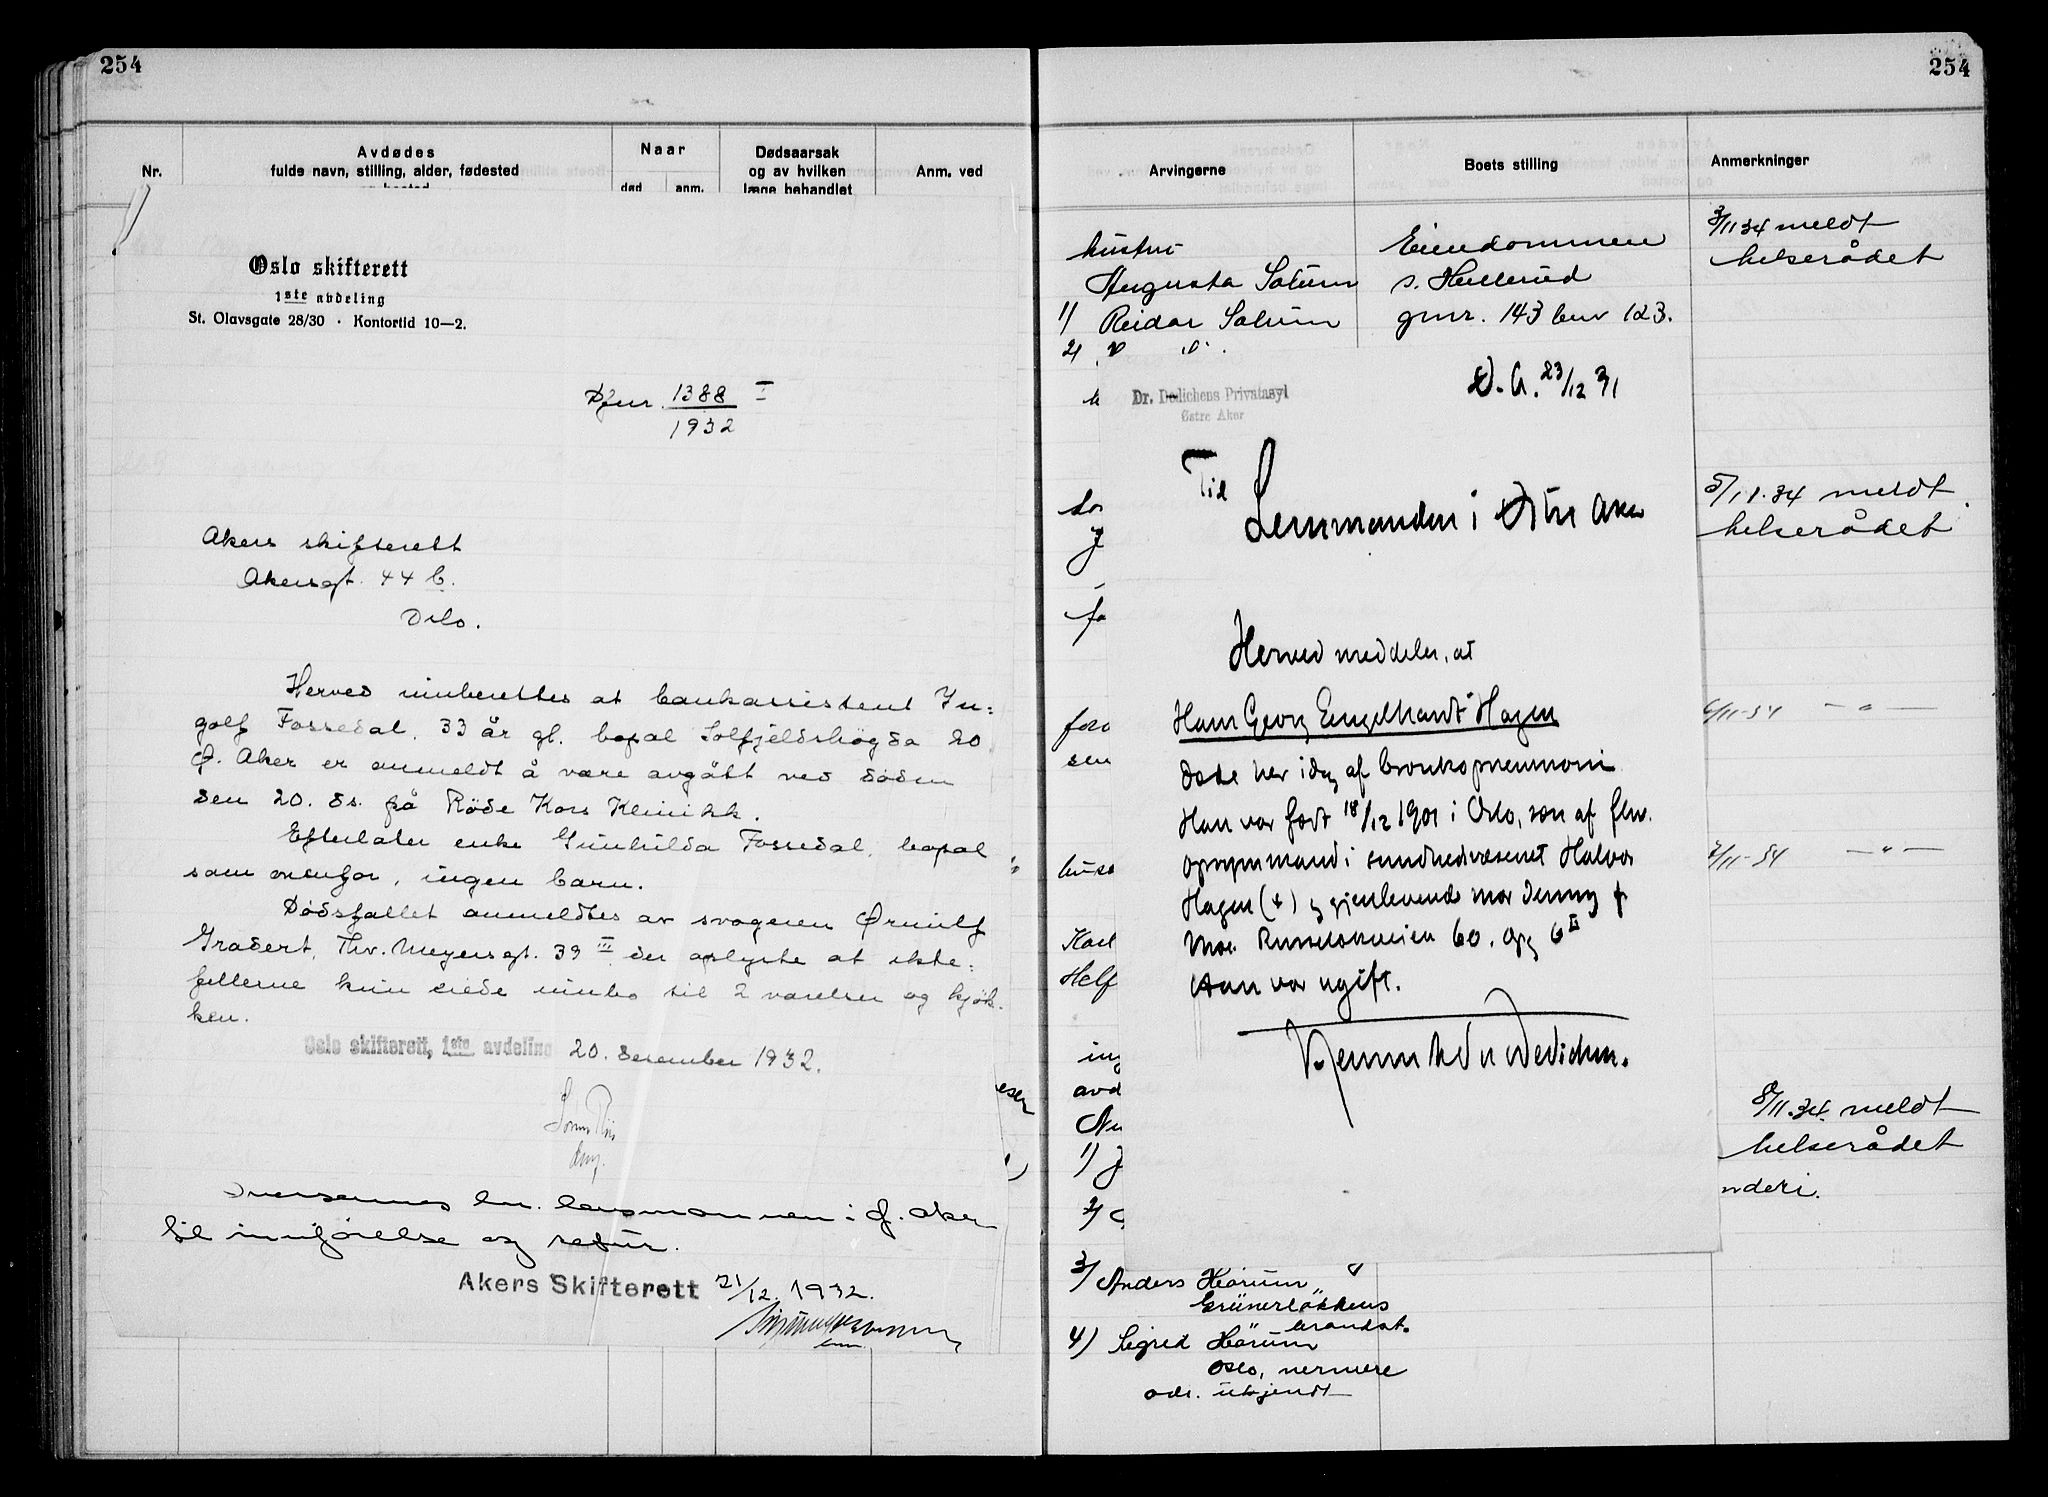 254
Nr.
Avdødes
fulde navn, stilling, alder, fødested
Naar
død anm.
Dødsaarsak
og av hvilken
læge behandlet
Anm. ved
Oslo skifterett
1ste avdeling
St. Olavsgate 28/30 · Kontortid 10—2.
Djur. 1388 I
1932
Akers skifterett
Akersgt. 44 b.
Oslo.
Herved innberettes at bankassistent In=
golf Fossedal, 33 år gl. bopal Solfjeldshøgda 20
Ø. Aker er anmeldt å være avgått ved døden
den 20. ds. på Røde Kors Klinikk.
Efterlater enke Gunhilda Fossedal, bopal
som ovenfor, ingen barn.
Dødsfallet anmeldtes av svogeren Ørnulf
Gradert, Thv. Meyersgt. 39 III der oplyste at ekte=
fellerne kun eiede innbo til 2 værelser og kjøk-
ken.
Oslo skifterett, 1ste avdeling 20. desember 1932.
Oversendes hr. lensmannen i Ø. Aker
til innførelse og retur.
Akers Skifterett 21/12. 1932.
254
Arvingerne
Boets stilling
Anmerkninger
hustru
Augusta Solum
1) Reidar Solum
2) " "
Eiendommen
s. Hellerud
gnr. 143 bnr 123.
3/11 34 meldt
helserådet
Dr. Dedichens Privatasyl
Østre Aker
D. A. 23/12 31
Til
Lensmanden i Østre Aker
5/11.34 meldt
helserådet
Herved meddeles, at
Hans Georg Engelhardt Hagen
døde her idag af bronkopneumoni
Han var født 18/12 1901 i Oslo, søn af flv.
opsynsmand i sundhedsvæsenet Halvor
Hagen (+) og gjenlevende mor Jenny f
Moe. Russeløkveien 60. opg 6 II
Han var ugift.
6/11-34 — " —
7/11-34 — " —
8/11.34. meldt
helserådet
3) Anders Hørum
Grünerløkkens
brandst.
4) Sigrid Hørum
Oslo, nermere
adr. ukjendt